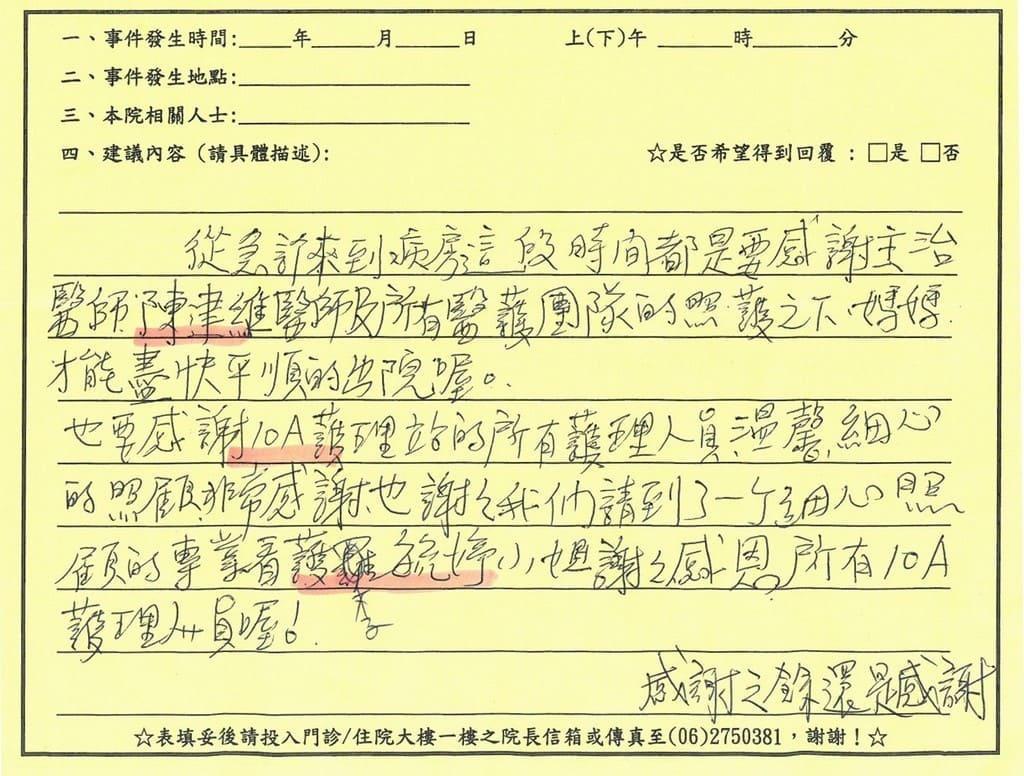 一、事件發生時間:____年____月____日 上(下)午 ____時____分
二、事件發生地點:____
三、本院相關人士:____
四、建議內容（請具體描述）: ☆是否希望得到回覆 : □是 □否
從急診來到病房這段時間都是要感謝主治
醫師陳津維醫師及所有醫護團隊的照護之下媽媽
才能盡快平順的出院喔。
也要感謝10A護理站的所有護理人員溫馨細心
的照顧非常感謝,也謝々我們請到了一个細心照
顧的專業看護 李毓婷小姐謝々感恩所有10A
護理人員喔!
感謝之餘還是感謝
☆表填妥後請投入門診/住院大樓一樓之院長信箱或傳真至(06)2750381，謝謝！☆